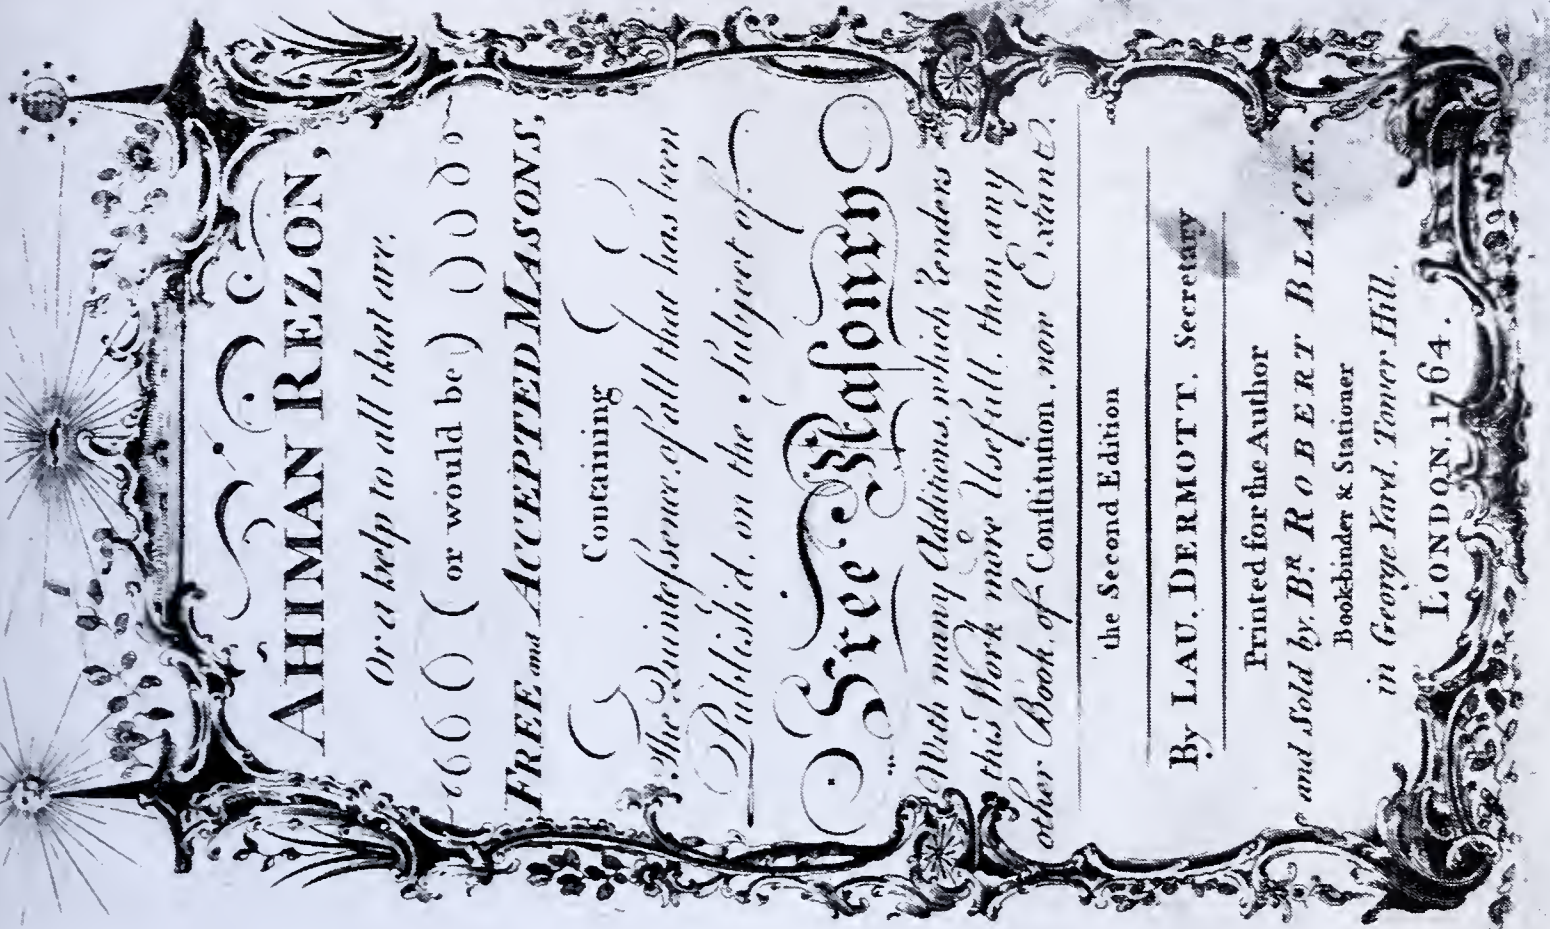 AHIMAN REZON,
Or a help to all that are.
( or would be )
FREE and ACCEPTED MASONS,
Containing
The Quintessence, of all that has been
Publish'd, on the Subject of.
Free Masonry
With many Additions, which Renders
this Work more Usefull, than any
other Book, of Constitution, now Extant.
the Second Edition
By LAU. DERMOTT. Secretary
Printed for the Author
and Sold by. Bᴿ. ROBERT BLACK.
Book-binder & Stationer
in George Yard. Tower Hill.
LONDON. 1764.